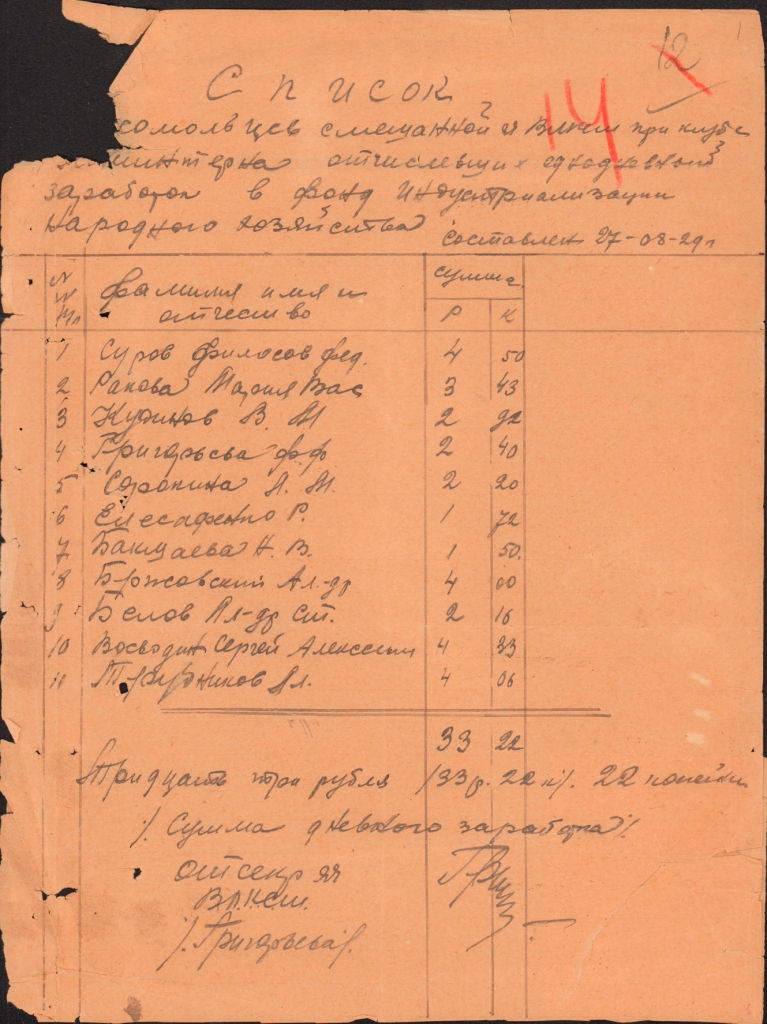 12
14
Список
сомольцев смешанной яч ВЛКСМ при клубе
интерна отчислевших однодневный
заработок в фонд Индустриализации
народного хозяйства
Составлен 27-08-29г
N N п/п
фамилия имя и отчество
сумма
Р К
1 Суров Филосов Фед. 4 50
2 Ракова Мария Вас 3 43
3 Кудинов В. М 2 92
4 Григорьева Ф.Ф 2 40
5 Сорокина А. М. 2 20
6 Елесафенко Р. 1 72
7 Бакшаева Н. В. 1 50.
8 Бржовский Ал-др 4 00
9 Белов Ал-др Ст. 2 16
10 Восводин Сергей Алексеевич 4 33
11 Ал. 4 06
33 22
Тридцать три рубля /33 р. 22 к/. 22 копейки
/. Сумма дневного заработка /.
Отсекр яч
В.Л.К.С.М.
/. Григорьева/.